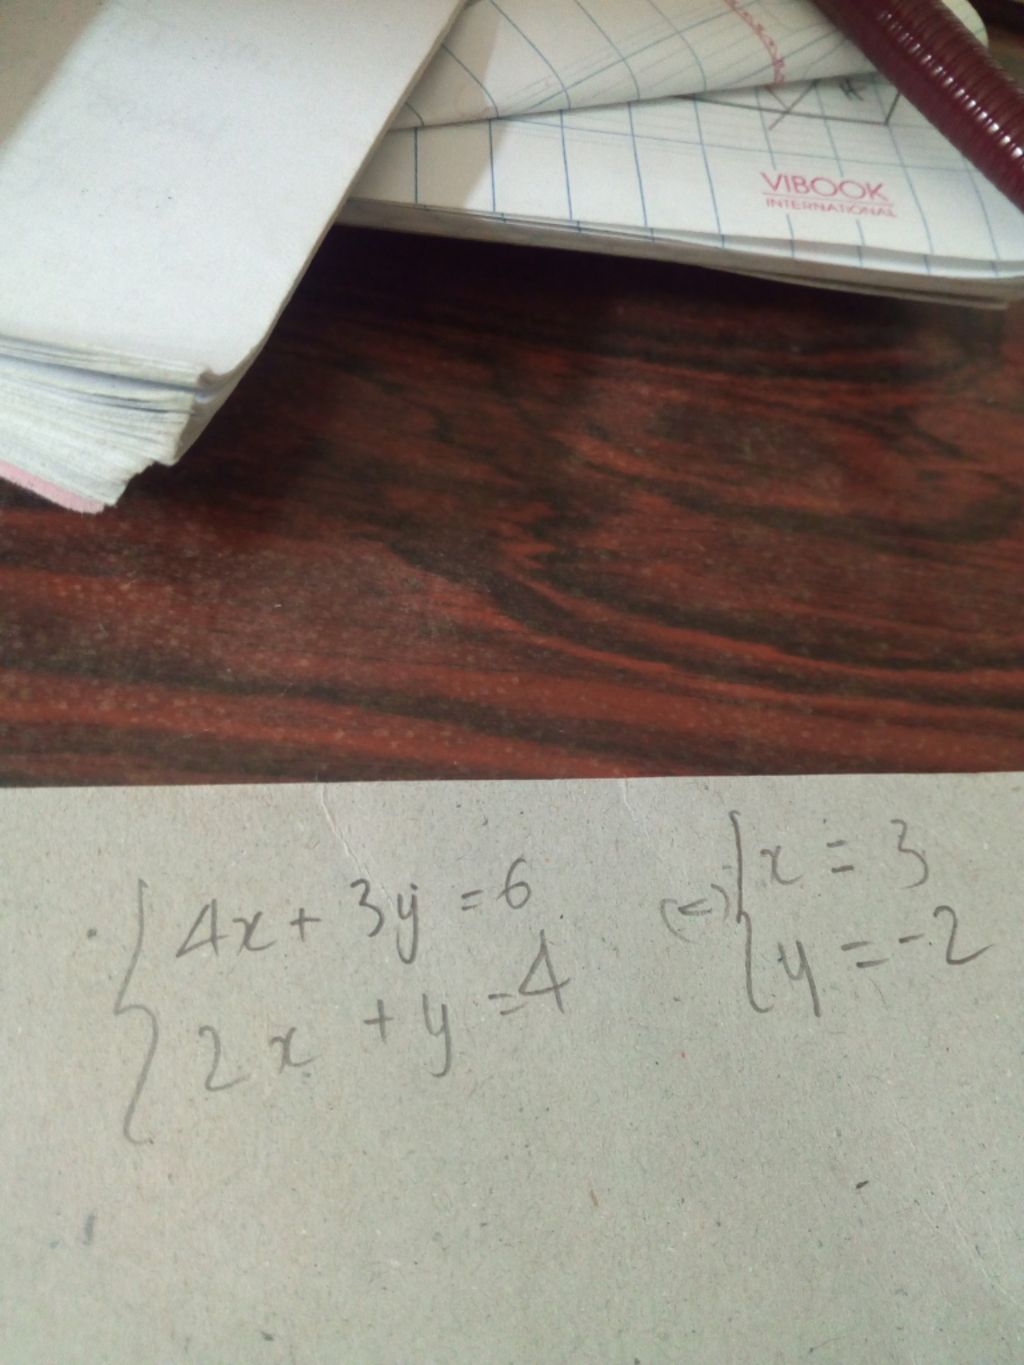 VIBOOK
INTERNATIONAL
4x + 3y = 6
2x + y = 4
(=) x = 3
y = -2